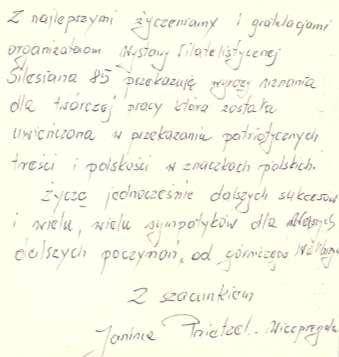 Z najlepszymi życzeniamy i gratulacjami
organizatorom Wystawy Filatelistycznej
Silesiana 85 przekazuję wyrazy uznania
dla twórczej pracy która została
uwieńczona w przekazaniu patriotycznych
treści i polskości w znaczkach polskich.
Życzę jednocześnie dalszych sukcesów
i wielu, wielu sympatyków dla
dalszych poczynań, od górniczego
Z szacunkiem
Janina